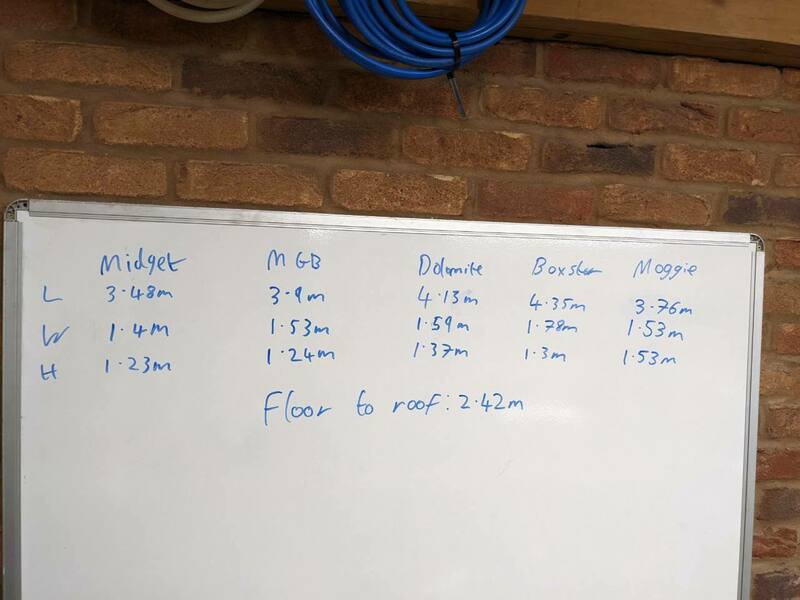 Midget MGB Dolomite Boxster Moggie
L 3.48m 3.9m 4.13m 4.35m 3.76m
W 1.4m 1.53m 1.59m 1.78m 1.53m
H 1.23m 1.24m 1.37m 1.3m 1.53m
Floor to roof: 2.42m